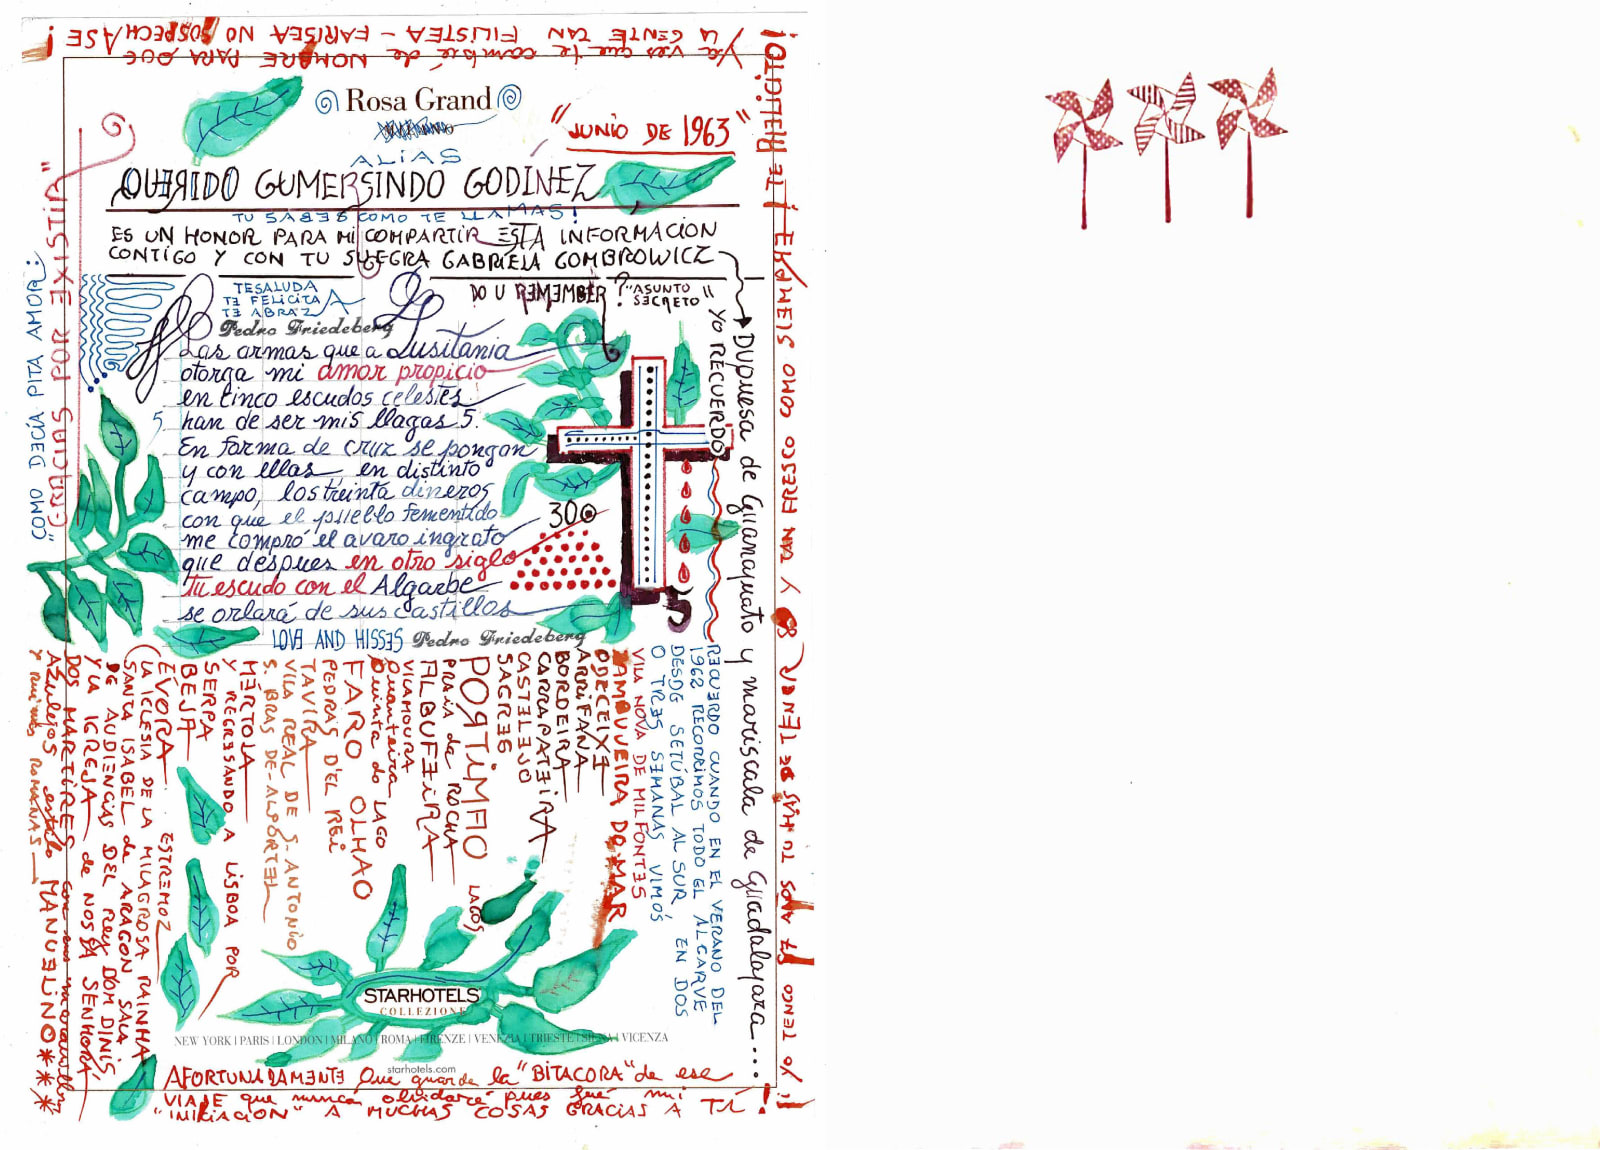 Ya ves que te cambié de NOMBRE PARA QUE
LA GENTE TAN FILISTEA - FARISEA NO SOSPECHASE!
Rosa Grand
"JUNIO DE 1963"
ALIAS
QUERIDO GUMERSINDO GODINEZ
TU SABES COMO TE LLAMAS!
ES UN HONOR PARA MI COMPARTIR ESTA INFORMACION
CONTIGO Y CON TU SUEGRA GABRIELA GOMBROWICZ
DUQUESA de Guanajuato y mariscala de Guadalajara....
TE SALUDA
TE FELICITA
TE ABRAZA
Pedro Friedeberg
DO U REMEMBER?
"ASUNTO
SECRETO"
YO RECUERDO
Las armas que a Lusitania
otorga mi amor propicio
en cinco escudos celestes
han de ser mis llagas 5.
5
En forma de cruz se pongan
y con ellas en distinto
campo, los treinta dineros
con que el pueblo fementido
me compró el avaro ingrato
que despues en otro siglo
tu escudo con el Algarbe
se orlará de sus castillos
30
LOVE AND HISSES Pedro Friedeberg
"COMO DECÍA PITA AMOR:
"GRACIAS POR EXISTIR"
RECUERDO CUANDO EN EL VERANO DEL
1962 RECORRIMOS TODO EL ALGARVE
DESDE SETÚBAL AL SUR, EN DOS
O TRES SEMANAS VIMOS
VILA NOVA DE MILFONTES
ZAMBUJEIRA DO MAR
ODECEIXE
ARRIFANA
BORDEIRA
CARRAPATEIRA
CASTELEJO
SAGRES
LAGOS
PORTIMAO
PRAIA da ROCHA
ALBUFEIRA
VILAMOURA
Quarteira
Quinta do LAGO
FARO OLHAO
PEDRAS D'EL REI
TAVIRA
VILA REAL DE S. ANTONIO
S. BRAS DE ALPORTEL
MERTOLA
Y REGRESANDO A LISBOA POR
SERPA
BEJA
EVORA ESTREMOZ
(LA IGLESIA DE LA MILAGROSA RAINHA
SANTA ISABEL de ARAGON SALA
DE AUDIENCIAS DEL Rey DOM DINIS,
Y LA IGREJA de NOSSA SENHORA
DOS MARTIRES con sus
AZULEJOS estilo MANUELINO***
Y ruinas ROMANAS
STARHOTELS
COLLEZIONE
NEW YORK | PARIS | LONDON | MILANO | ROMA | FIRENZE | VENEZIA | TRIESTE | SIENA | VICENZA
starhotels.com
AFORTUNADAMENTE que guardé la "BITACORA" de ese
VIAJE que nunca olvidaré pues fué mi
"INICIACION" A MUCHAS COSAS GRACIAS A TI!
YO TENGO 87 AÑOS TU HAS DE TENER 98 Y TAN FRESCO COMO SIEMPRE ¡TE HEREDITO!